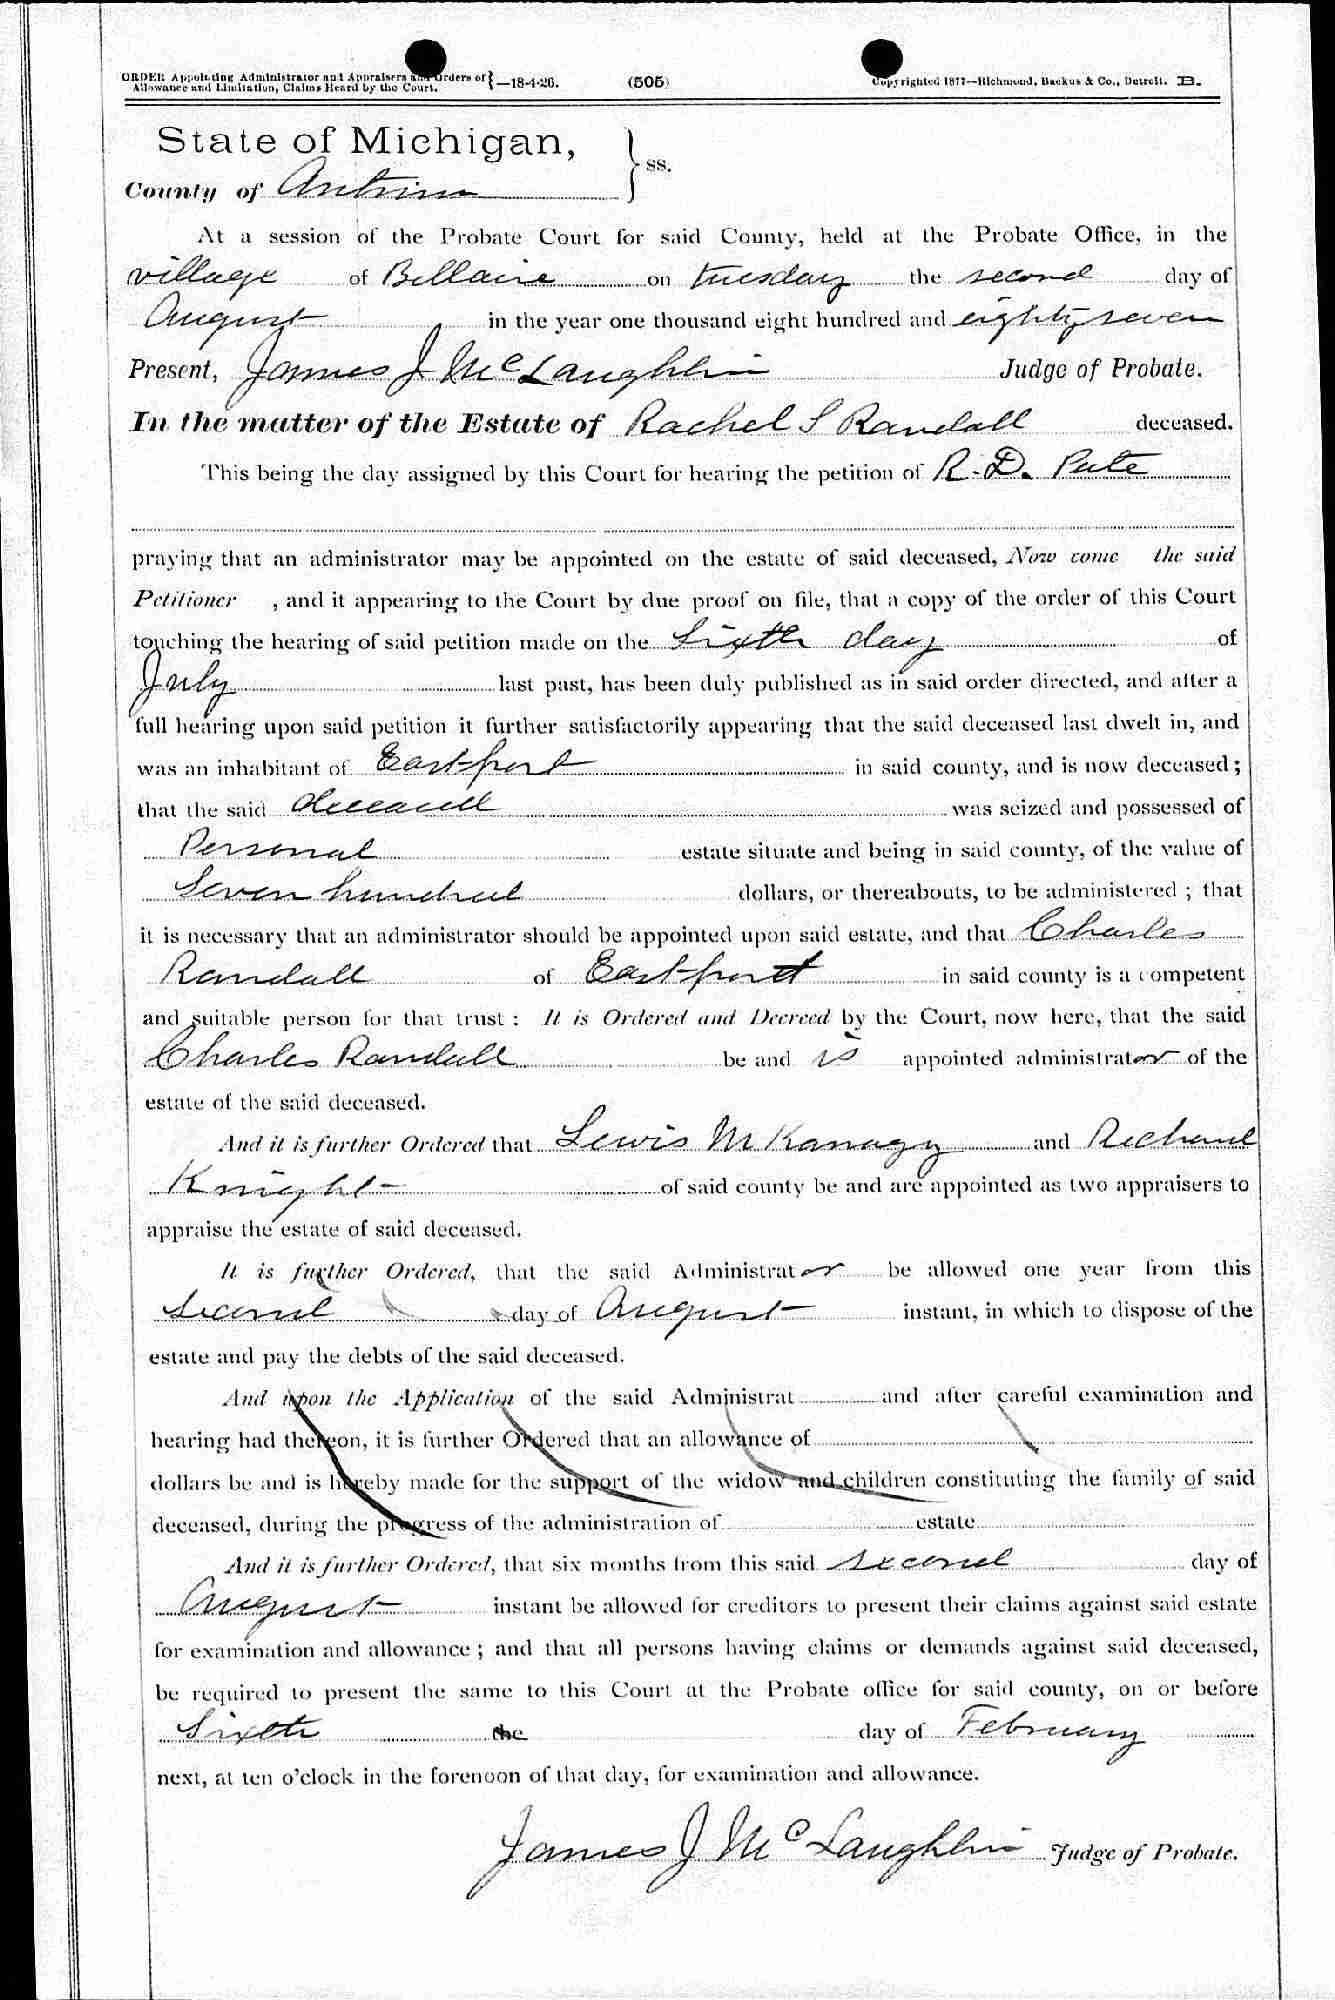 ORDER Appointing Administrator and Appraisers and Orders of } —18-4-26. (505) Copyrighted 1877—Richmond, Backus & Co., Detroit. B.
Allowance and Limitation, Claims Heard by the Court.
State of Michigan, } ss.
County of Antrim
At a session of the Probate Court for said County, held at the Probate Office, in the
village of Bellaire on tuesday the second day of
August in the year one thousand eight hundred and eighty seven
Present, James J McLaughlin Judge of Probate.
In the matter of the Estate of Rachel S Randall deceased.
This being the day assigned by this Court for hearing the petition of R. D. Pate
praying that an administrator may be appointed on the estate of said deceased, Now come the said
Petitioner , and it appearing to the Court by due proof on file, that a copy of the order of this Court
touching the hearing of said petition made on the Sixth day of
July last past, has been duly published as in said order directed, and after a
full hearing upon said petition it further satisfactorily appearing that the said deceased last dwelt in, and
was an inhabitant of Eastport in said county, and is now deceased;
that the said deceased was seized and possessed of
Personal estate situate and being in said county, of the value of
Seven hundred dollars, or thereabouts, to be administered ; that
it is necessary that an administrator should be appointed upon said estate, and that Charles
Randall of Eastport in said county is a competent
and suitable person for that trust : It is Ordered and Decreed by the Court, now here, that the said
Charles Randall be and is appointed administrator of the
estate of the said deceased.
And it is further Ordered that Lewis M Kanagy and Richard
Knight of said county be and are appointed as two appraisers to
appraise the estate of said deceased.
It is further Ordered, that the said Administrator be allowed one year from this
Second day of August instant, in which to dispose of the
estate and pay the debts of the said deceased.
And upon the Application of the said Administrat and after careful examination and
hearing had thereon, it is further Ordered that an allowance of
dollars be and is hereby made for the support of the widow and children constituting the family of said
deceased, during the progress of the administration of estate
And it is further Ordered, that six months from this said second day of
August instant be allowed for creditors to present their claims against said estate
for examination and allowance ; and that all persons having claims or demands against said deceased,
be required to present the same to this Court at the Probate office for said county, on or before
Sixth the day of February
next, at ten o'clock in the forenoon of that day, for examination and allowance.
James J McLaughlin Judge of Probate.